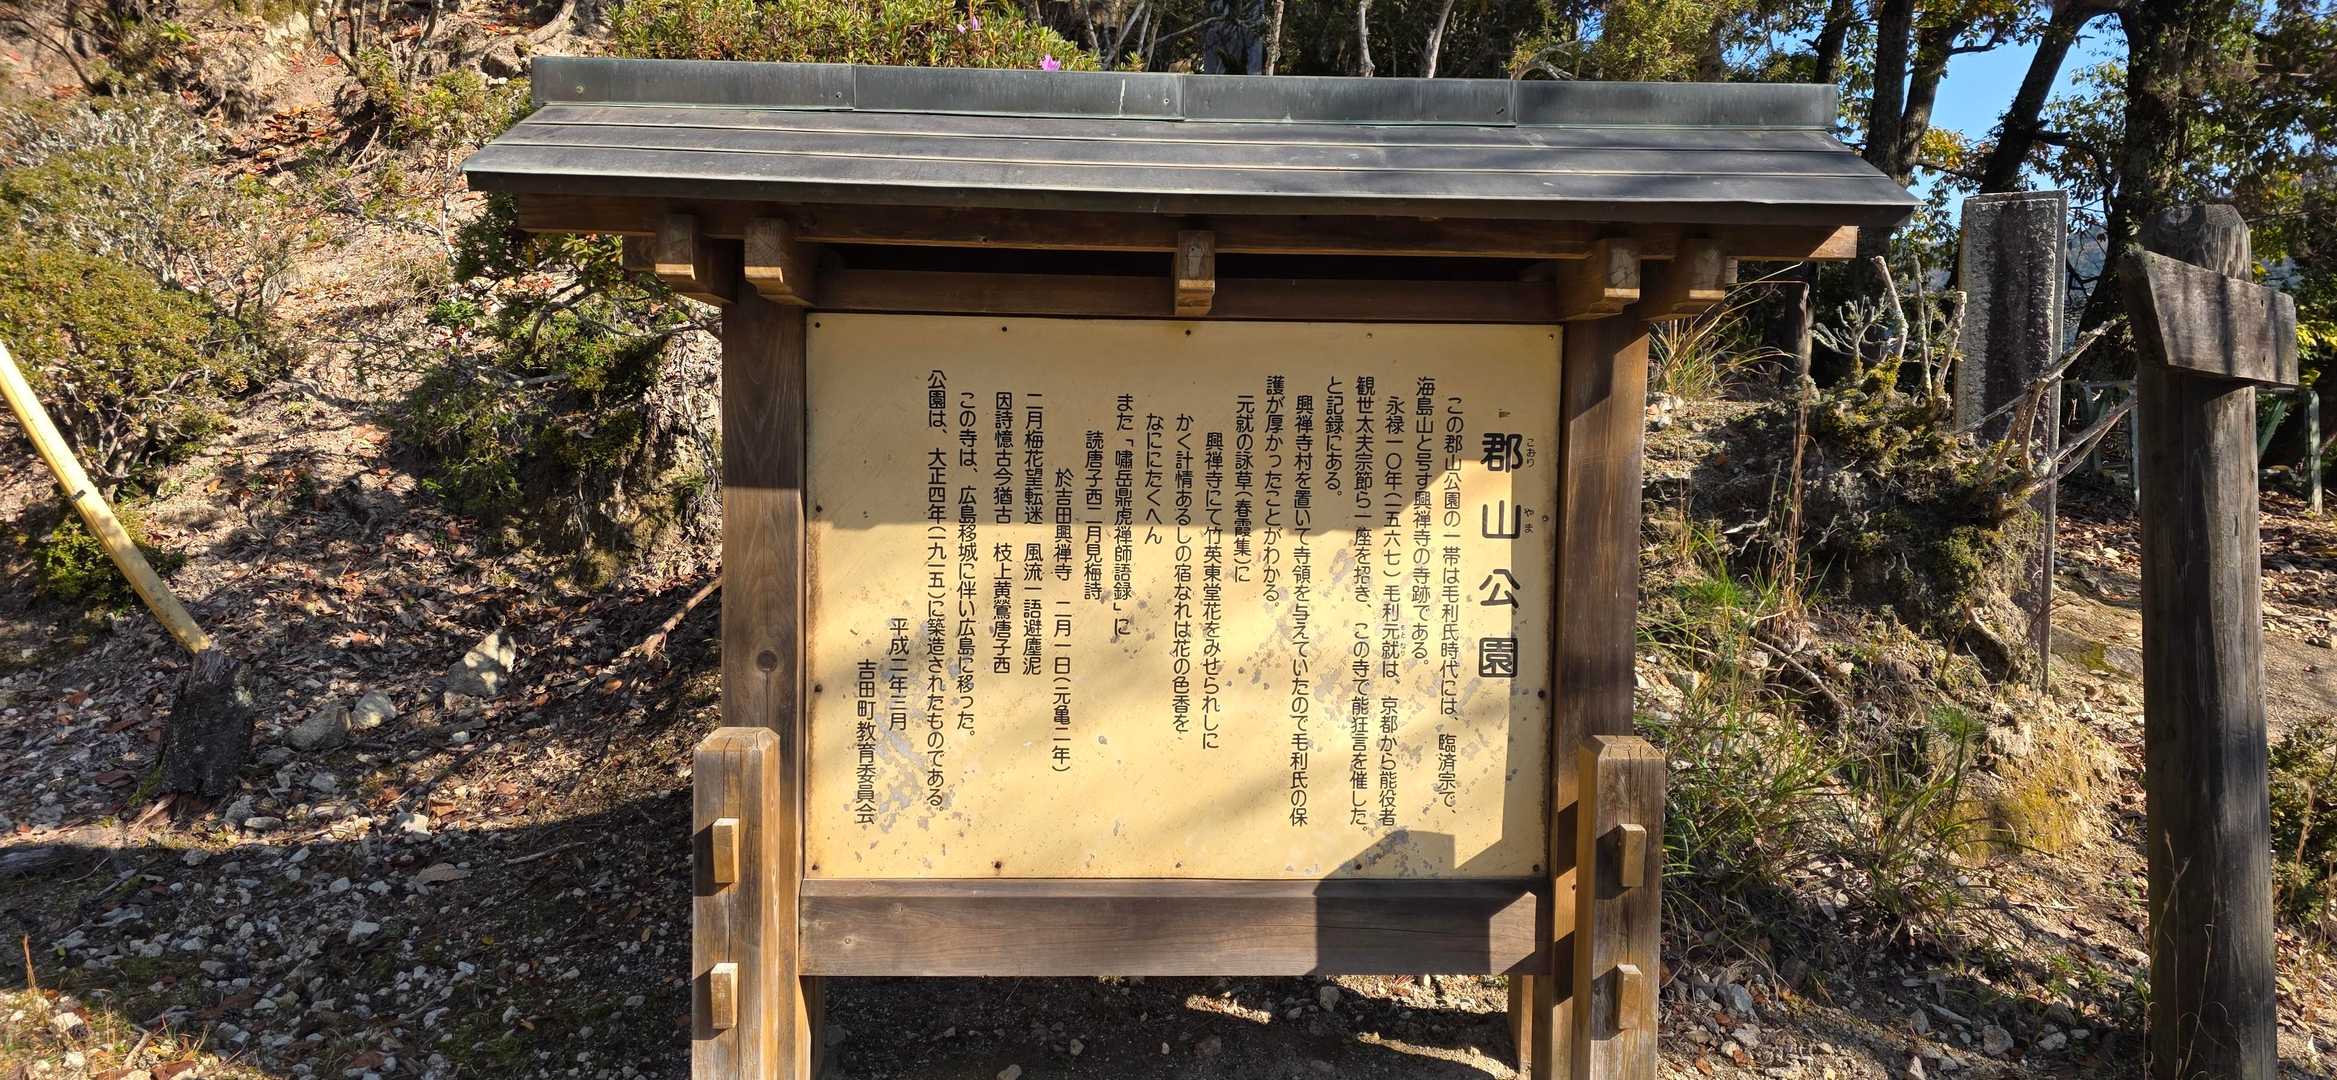 郡山公園
こおり やま
この郡山公園の一帯は毛利氏時代には、臨済宗で、
海島山と号す興禅寺の寺跡である。
永禄一〇年(一五六七)毛利元就は、京都から能役者
観世太夫宗節ら一座を招き、この寺で能狂言を催した
と記録にある。
興禅寺村を置いて寺領を与えていたので毛利氏の保
護が厚かったことがわかる。
元就の詠草(春霞集)に
興禅寺にて竹英東堂花をみせられしに
かく計情あるしの宿なれは花の色香を
なににたくへん
また「嘯岳鼎虎禅師語録」に
読唐子西二月見梅詩
於吉田興禅寺 二月一日(元亀二年)
二月梅花望転迷 風流一語避塵泥
因詩憶古今猶古 枝上黄鶯唐子西
この寺は、広島移城に伴い広島に移った。
公園は、大正四年(一九一五)に築造されたものである。
平成二年三月
吉田町教育委員会